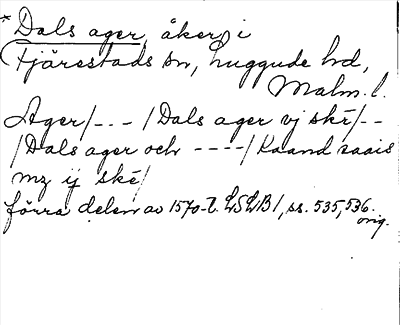 * Dals ager, åker i
Fjärestads sn, Luggude hd,
Malm. l.
Ager/--- / Dals ager vj ské/--
/Dals ager och ----/ Kaand saais
mz ij ské/
förra delen av 1570-t. LSLB 1, ss. 535, 536.
orig.